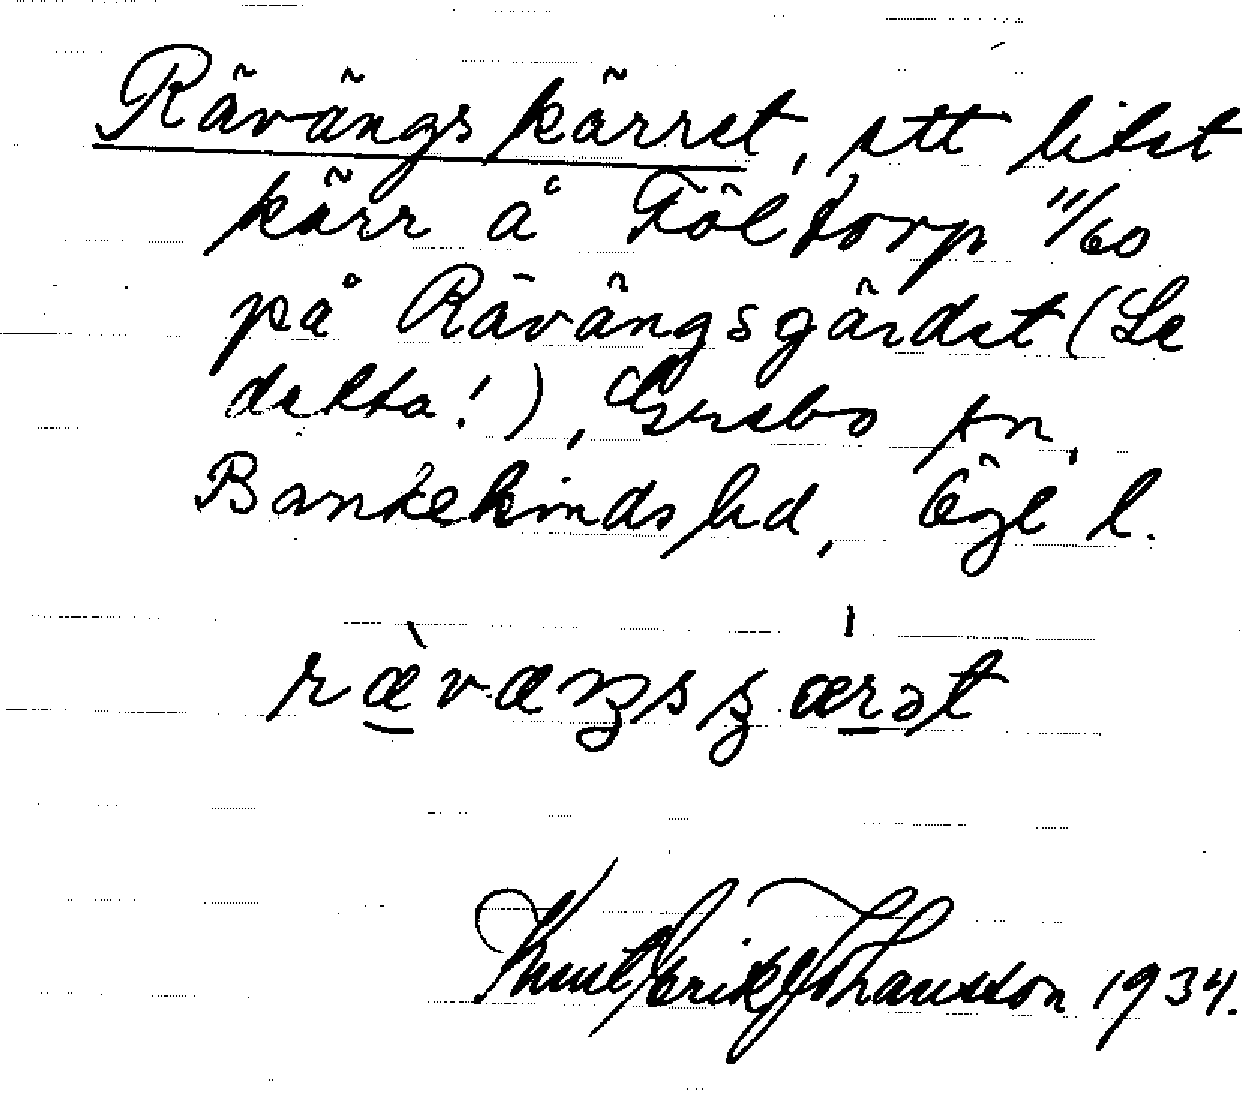 Rävängskärret, ett litet
kärr å Föltorp 11/60
på Rävängsgärdet (Se
detta!), Grebo sn,
Bankekinds hd, Ögl l.
rävaŋsʂärət
Knut Erik Johansson 1934.